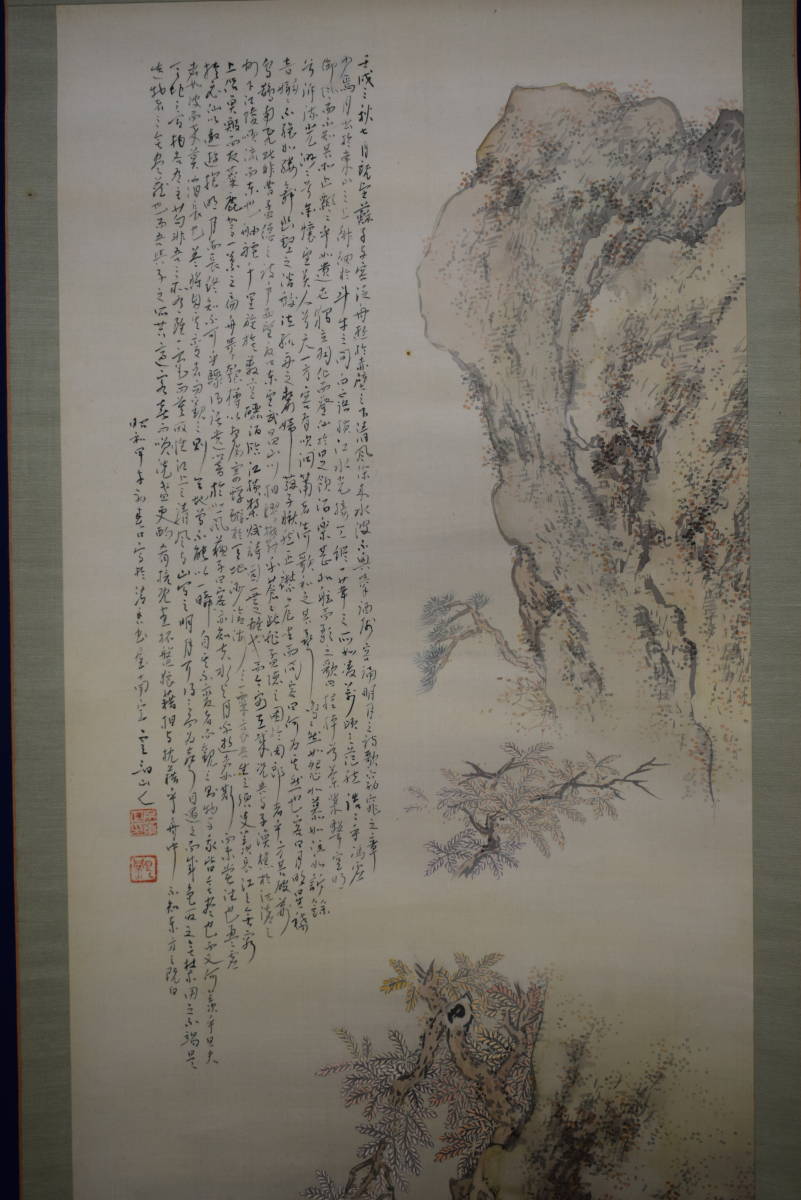 壬戌之秋七月既望蘇子与客泛舟遊於赤壁之下清風徐来水波不興挙酒属客誦明月之詩歌窈窕之章
少焉月出於東山之上徘徊於斗牛之間白露横江水光接天縦一葦之所如凌万頃之茫然浩浩乎馮虚
御風而不知其所止飄飄乎如遺世独立羽化而登仙於是飲酒楽甚扣舷而歌之歌曰桂棹兮蘭槳撃空明
兮泝流光渺渺兮予懐望美人兮天一方客有吹洞簫者倚歌和之其声鳴鳴然如怨如慕如泣如訴余
音嫋嫋不絶如縷舞幽壑之潜蛟泣孤舟之嫠婦蘇子愀然正襟危坐而問客曰何為其然也客曰月明星稀
烏鵲南飛此非曹孟徳之詩乎西望夏口東望武昌山川相繆鬱乎蒼蒼此非孟徳之困於周郎者乎方其破荊
州下江陵順流而東也舳艫千里旌旗蔽空釃酒臨江横槊賦詩固一世之雄也而今安在哉況吾与子漁樵於江渚之
上侶魚鰕而友麋鹿駕一葉之扁舟挙匏樽以相属寄蜉蝣於天地渺滄海之一粟哀吾生之須臾羨長江之無窮
挟飛仙以遨遊抱明月而長終知不可乎驟得託遺響於悲風蘇子曰客亦知夫水与月乎逝者如斯而未嘗往也盈虚
者如彼而卒莫消長也蓋将自其変者而観之則天地曾不能以一瞬自其不変者而観之則物与我皆無尽也而又何羨乎且夫
天地之間物各有主苟非吾之所有雖一毫而莫取惟江上之清風与山間之明月耳得之而為声目遇之而成色取之無禁用之不竭是
造物者之無尽蔵也而吾与子之所共適客喜而笑洗盞更酌肴核既尽杯盤狼藉相与枕藉乎舟中不知東方之既白
昭和甲子初春日写於